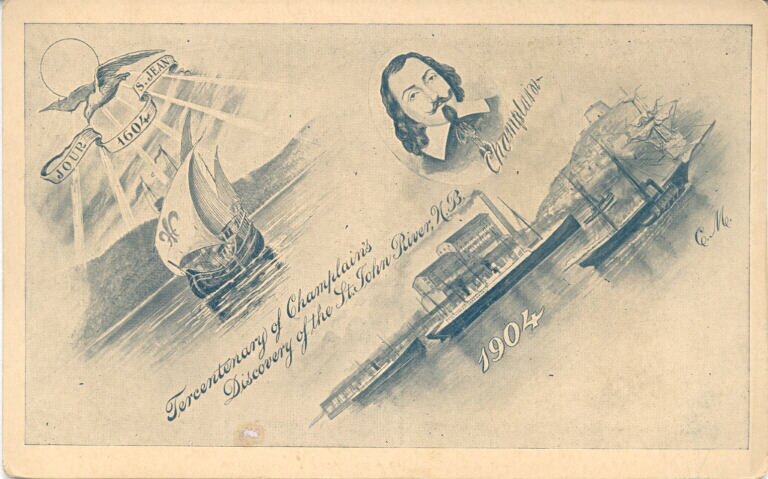 JOUR 1604 S. JEAN
Champlain
Tercentenary of Champlain's
Discovery of the St. John River, N.B.
1904
C.M.